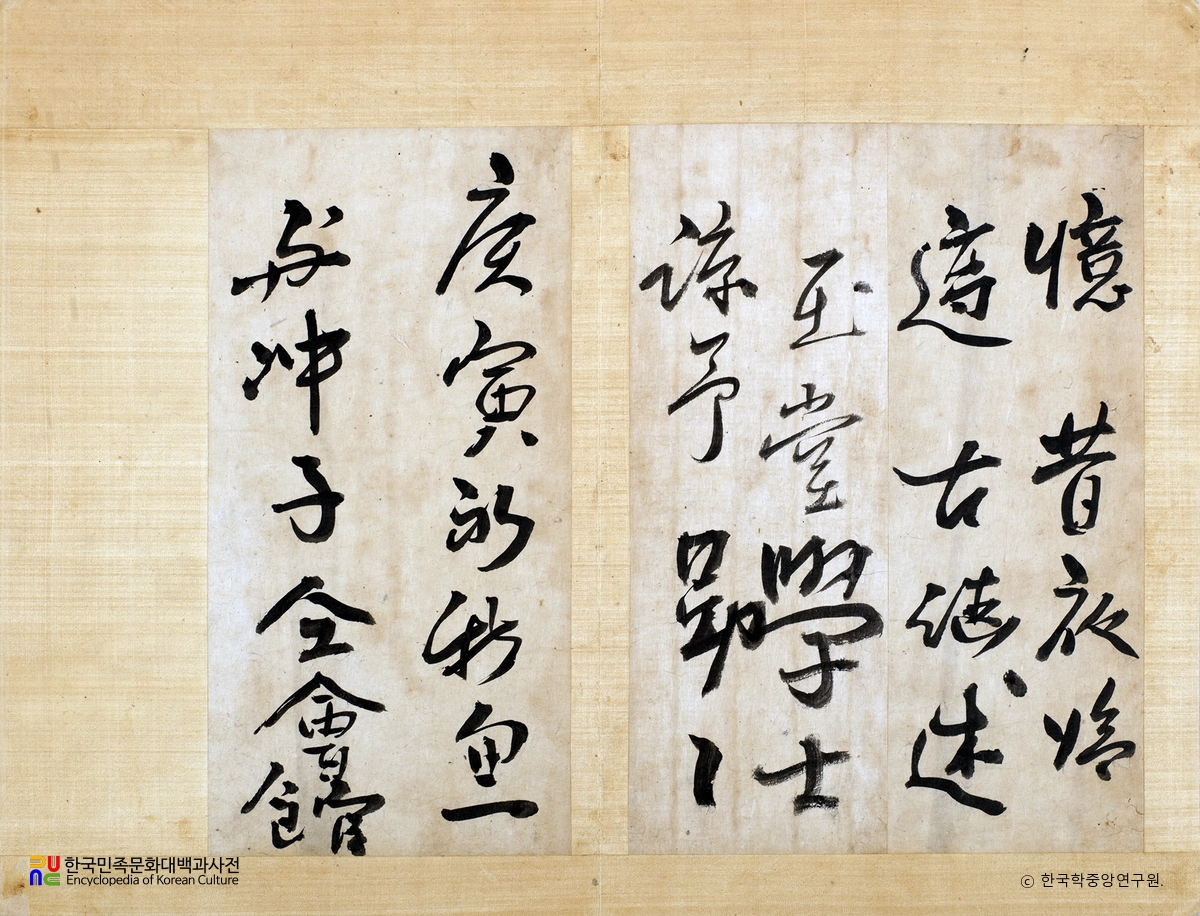 憶昔夜
遵古繼述
玉堂學士
諒予勗
庚寅初秋
与冲子仝會館
한국민족문화대백과사전
Encyclopedia of Korean Culture
ⓒ 한국학중앙연구원.